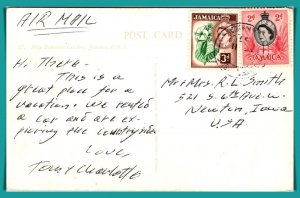 AIR MAIL
POST CARD
JAMAICA
3d
2d
JAMAICA
Hi There -
This is a
great place for a
vacation. We rented
a car and are ex-
ploring the countryside
Love,
Tom & Charlotte
Mr + Mrs. R. L. Smith
521 S. 6th Ave. W.
Newton, Iowa
U.S.A.